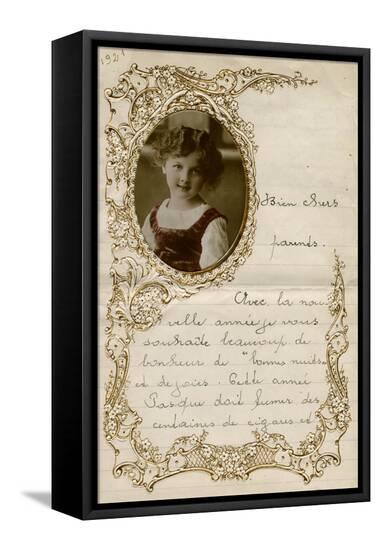 1921
Bien chers
parents.
Avec la nou
velle année je vous
souhaite beaucoup de
bonheur de "bonnes nuits„
et de joies. Cette année
Pasque doit fumer des
centaines de cigares et